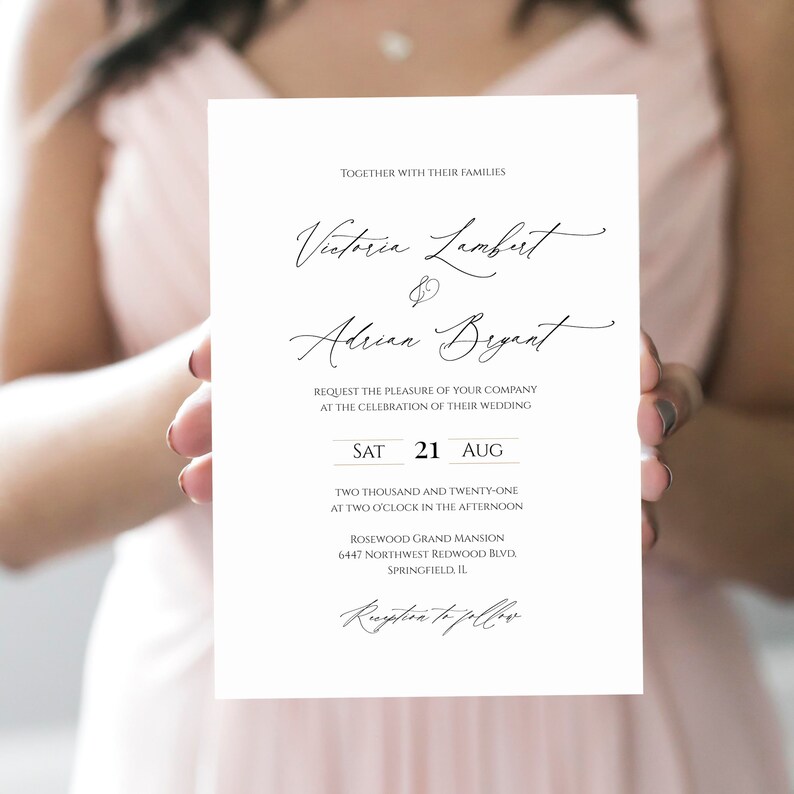 Together with their families
Victoria Lambert
&
Adrian Bryant
request the pleasure of your company
at the celebration of their wedding
Sat 21 Aug
two thousand and twenty-one
at two o'clock in the afternoon
Rosewood Grand Mansion
6447 Northwest Redwood Blvd,
Springfield, IL
Reception to follow